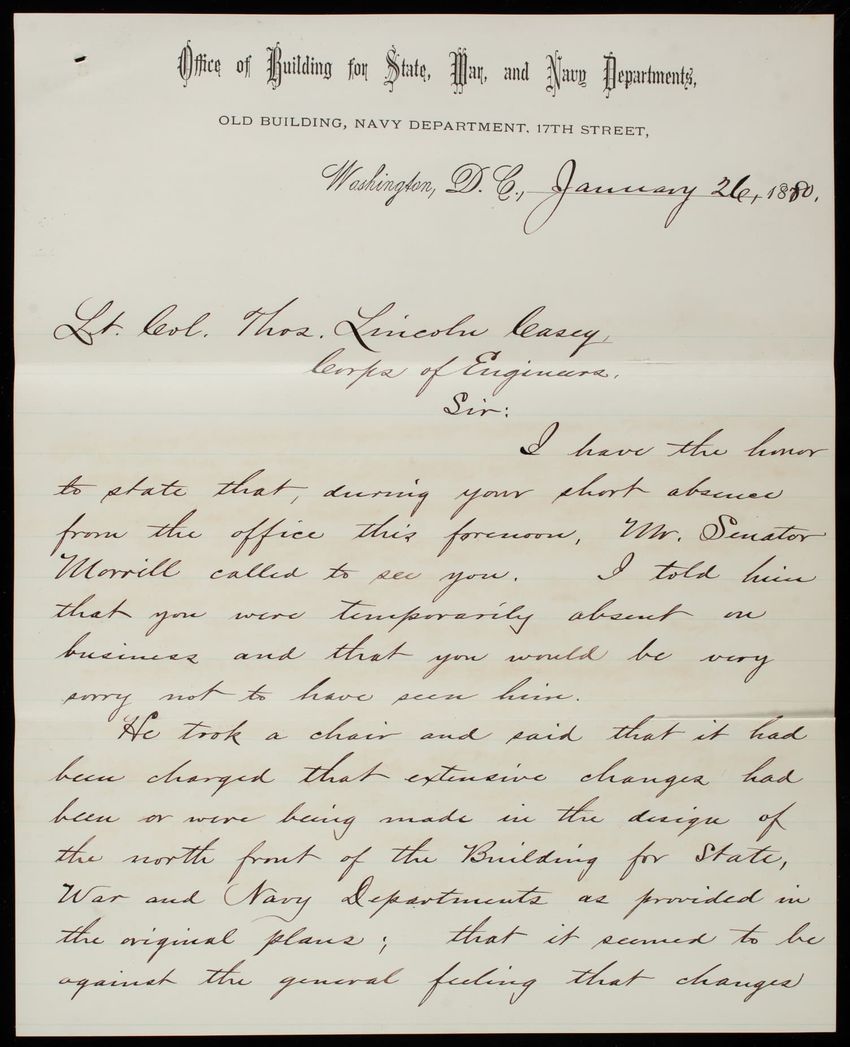 Office of Building for State, War, and Navy Departments,
OLD BUILDING, NAVY DEPARTMENT, 17TH STREET,
Washington, D. C., January 26, 1880.
Lt. Col. Thos. Lincoln Casey,
Corps of Engineers.
Sir:
I have the honor
to state that, during your short absence
from the office this forenoon, Mr. Senator
Morrill called to see you. I told him
that you were temporarily absent on
business and that you would be very
sorry not to have seen him.
He took a chair and said that it had
been charged that extensive changes had
been or were being made in the design of
the north front of the Building for State,
War and Navy Departments as provided in
the original plans; that it seemed to be
against the general feeling that changes